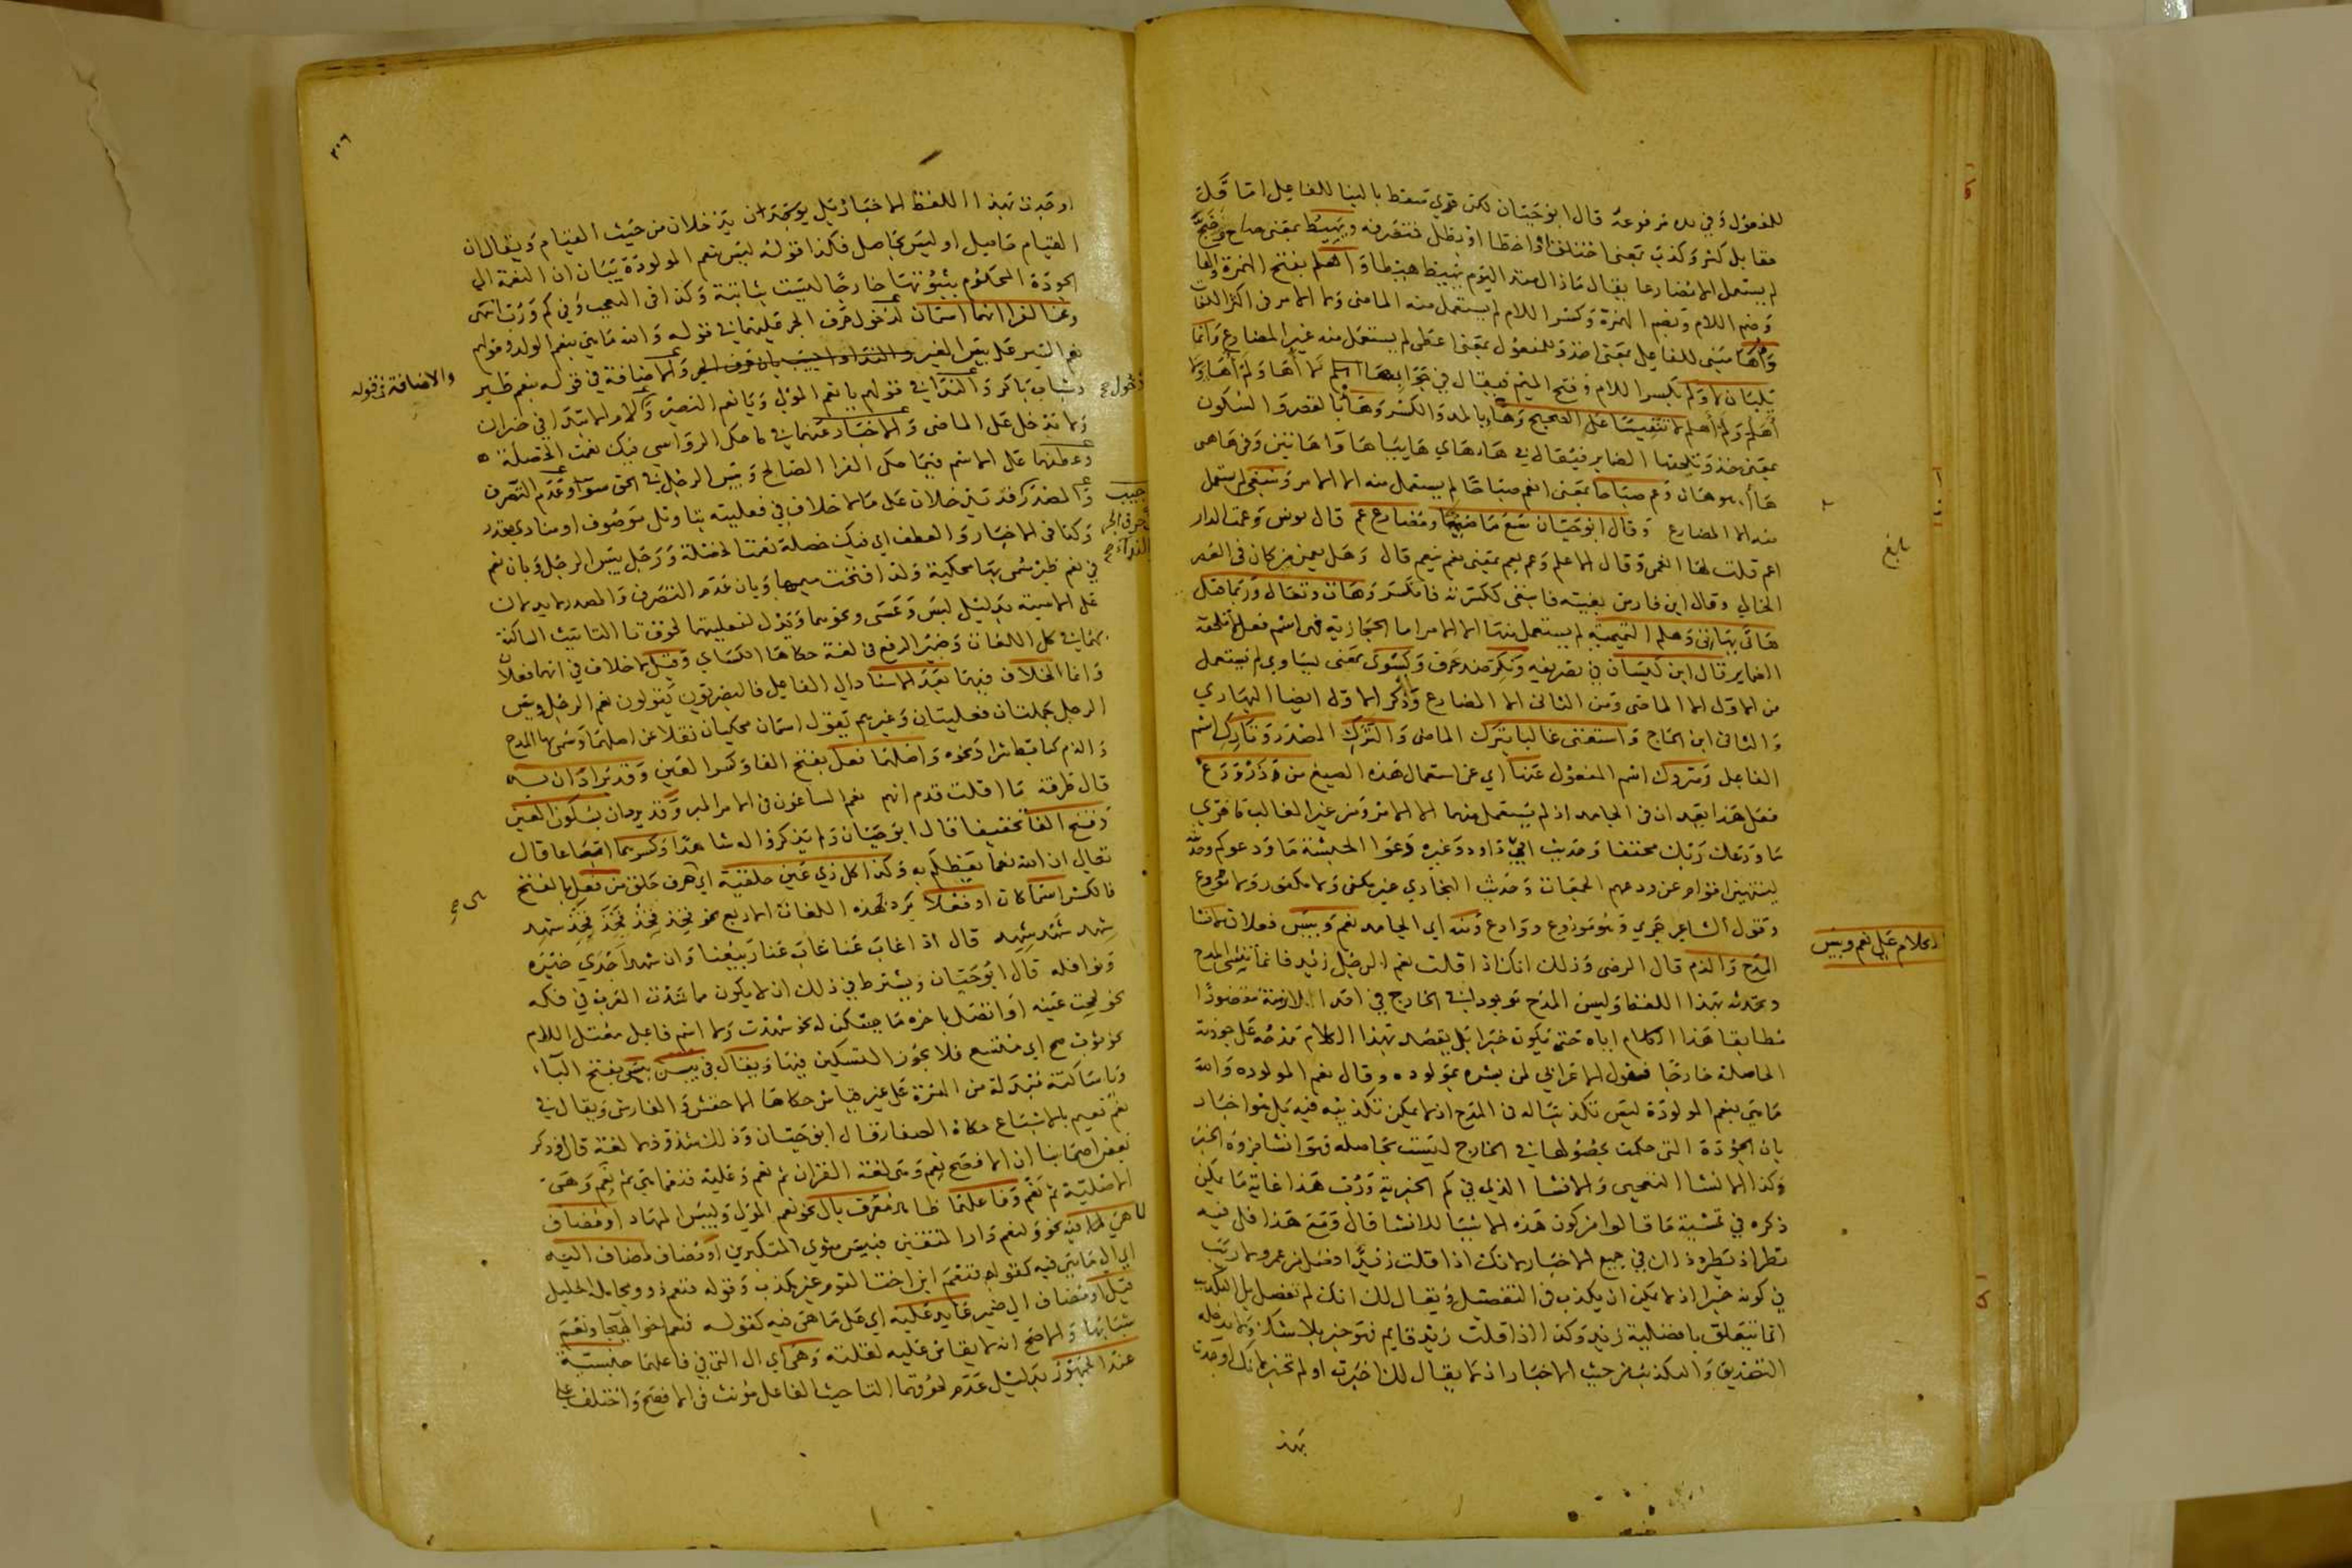 للمفعول وفي يده مرفوعة قال ابو حيان لكن قرئ سقط بالبنا للفاعل اما قلّ
مقابل كثر وكذب بمعنى اختلق او اخطا او بطل فتتصرف ويهيط بمعنى صاح وضج
لم يستعمل الا مضارعا يقال ما زال منذ اليوم يهيط هيطا واهلم بفتح الهمزة والها
وضم اللام وبضم الهمزة وكسر اللام لم يستعمل منه الماضى ولا الامر في اكثر اللغات
واها مبنى للفاعل بمعنى اخذ وللمفعول بمعنى اعطى لم يستعمل منه غير المضارع وانما
يلبان لا ولم بكسر اللام وفتح الميم فيقال في جواب ها لا اها ولم اها ولا
اهلم ولم اهلم لا تنفيسا على الصحيح وهاء بالمد والكسر وها بالقصر والسكون
بمعنى خذ وتلحقها الضماير فيقال في ها رهاي هايبا
منه الا المضارع وقال ابو حيان سمع ماضيهما ومضارع عم قال يونس وعمت الدار
اعم قلت لها انعمى وقال الاعلم وعم يعم بمعنى نعم ينعم قال وهل يعمن من كان في العصر
الخالي وقال ابن فارس بغيته فانبغى ككسرته فانكسر وهات وتعال وربما قيل
هاتى يهاتى وهلم التميمية لم يستعمل منها الا الامر اما الحجازية فهى اسم فعل لا تلحقه
الضماير قال ابن كيسان في تصريفه ونكر ضد عرف ويسوى بمعنى يساوي لم يستعمل
من الاول الا الماضى ومن الثانى الا المضارع وذكر الاول ايضا البهاري
والثانى ابن الحاج واستغنى غالبا بترك الماضى والترك المصدر وتارك اسم
الفاعل ومتروك اسم المفعول عنها اي عن استعمال هذه الصيغ من وذر وودع
فعل هذا يعدان في الجامد اذ لم يستعمل منهما الا الامر ومن غير الغالب ما قري
ما ودعك ربك مخففا وحديث ابي داود وغيره دعوا الحبشة ما ودعوكم وحديث
لينتهين اقوام عن ودعهم الجمعات وحديث البخاري غير مكفى ولا مكفور ولا مودع
وقول الشاعر جري وهو مودوع ووادع ومنه اي الجامد نعم وبيس فعلان لانشا
المدح والذم قال الرضى وذلك انك اذا قلت نعم الرجل زيد فانما تنشئ المدح
وتحدثه بهذا اللفظ وليس المدح موجودا في الخارج في احد الازمنة مقصودا
مطابقا هذا الكلام اياه حتى يكون خبرا بل يقصد بهذا الكلام مدحه على جودته
الحاصلة خارجا فقول الاعرابي لمن بشره بمولوده وقال نعم المولوده والله
ما هى بنعم المولودة ليس تكذيبا له في المدح اذ لا يمكن تكذيبه فيه بل هو اخبار
بان الجودة التى حكمت بحصولها في الخارج ليست بحاصله فهو انشا جزوه الخبر
وكذا الانشا التعجبى والانشا الذي في كم الخبرية ورب هذا غاية ما يمكن
ذكره في تمشية ما قالوا من كون هذه الاشيا للانشا قال ومع هذا فلى فيه
نظر اذ يطرد ذلك في جميع الاخبار لانك اذا قلت زيد افضل من عمرو لا ريب
في كونه خبرا اذ لا يمكن ان يكذب في التفضيل ويقال لك انك لم تفضل بل التكذيب
انما يتعلق بافضلية زيد وكذا اذا قلت زيد قايم فهو خبر بلا شك ولا يدخله
التصديق والتكذيب من حيث الاخبار اذ لا يقال لك اخبرت او لم تخبر لانك اوجدت
بهذ
بلغ
الكلام على نعم وبئس
٣٠٦
اوجدت بهذا اللفظ الاخبار بل يوجد ان يدخلان من حيث القيام ويقال ان
القيام حاصل او ليس بحاصل فكذا قوله ليس بنعم المولودة بيان ان النعمة اي
الجودة المحكوم بثبوتها خارجا ليست بثابتة وكذا في التعجب وفي كم ورب انتهى
وعن الفرا انهما اسمان لدخول حرف الجر عليهما في قوله والله ما هى بنعم الولد وقولهم
نعم السير على بيس العير والاضافة في قوله بنعم طير
وشباب باكر والندا في قولهم يا نعم المولى ويا نعم النصير
ولا تدخل على الماضى والاخبار عنهما في ما حكى الرواسى فيك نعمت الخصلة
وعطفهما على الاسم فيما حكى الفرا الصالح وبيس الرجل في الحق سوا وعدم التصرف
وكذا في الاخبار والعطف اي فيك خصلة نعمت الخصلة ورجل بيس الرجل وبان نعم
في نعم طير سمى بها محكية ولذا فتحت ميمها وبان عدم التصرف والمصدر لا يدلان
على الاسمية بدليل ليس وعسى ونحوهما ويدل لفعليتهما لحوق تا التانيث الساكنة
بهما في كل اللغات وضمير الرفع في لغة حكاها الكساي وقيل لا خلاف في انهما فعلان
وانما الخلاف فيهما بعد الاسناد الى الفاعل فالبصريون يقولون نعم الرجل وبيس
الرجل جملتان فعليتان وغيرهم يقول اسمان محكيان نقلا عن اصلهما وسمى بهما المدح
والذم كتابط شرا ونحوه واصلهما فعل بفتح الفا وكسر العين وقد يرادان به
قال طرفة ما اقلت قدم انهم نعم الساعون في الامر المبر وقد يردان بسكون العين
وفتح الفا تخفيفا قال ابو حيان ولم يذكروا له شاهدا وكسرهما اتباعا قال
تعالى ان الله نعما يعظكم به وكذا كل ذي عين حلقية اي حرف حلق من فعل بالفتح
فالكسر اسما كان او فعلا يرد بهذه اللغات الاربع نحو فخذ فخذ فخذ فخذ شهد
شهد شهد شهد قال اذا غاب عنا غاب عنا ربيعنا وان شهد اجدى خيره
ونوافله قال ابو حيان ويشترط في ذلك ان لا يكون مما شذت العرب في فكه
نحو لححت عينه او اتصل باخره ما يسكن له نحو شهدت ولا اسم فاعل معتل اللام
نحو ثوب صح اي متسع فلا يجوز التسكين فيها ويقال في بيس بيس بفتح البآء
ويا ساكنة مبدلة من الهمزة على غير قياس حكاها الاخفش والفارسى ويقال في
نعم نعيم بالاشباع حكاه الصفار قال ابو حيان وذلك شذوذ لا لغة قال وذكر
بعض اصحابنا ان الافصح نعم وهى لغة القران ثم نعم وعليه فنعما هي ثم نعم وهى
الاصلية ثم نعم وفاعلهما ظاهر معرف بال نحو نعم المولى ولبيس المهاد او مضاف
لما هى فيه نحو ولنعم دار المتقين فبيس مثوي المتكبرين او مضاف لمضاف اليه
اي الى ما هى فيه كقوله فنعم ابن اخت القوم غير مكذب وقوله فنعم ذوو مجاملة الخليل
قيل او مضاف الى ضمير عايد عليه اي على ما هى فيه كقوله فنعم اخو الهيجا ونعم
شبابها والاصح انه لا يقاس عليه لقلته وهى اي ال التى في فاعلهما جنسية
عند الجمهور بدليل عدم لحوقهما التا حيث الفاعل مؤنث في الافصح واختلف على
والاضافة في قوله